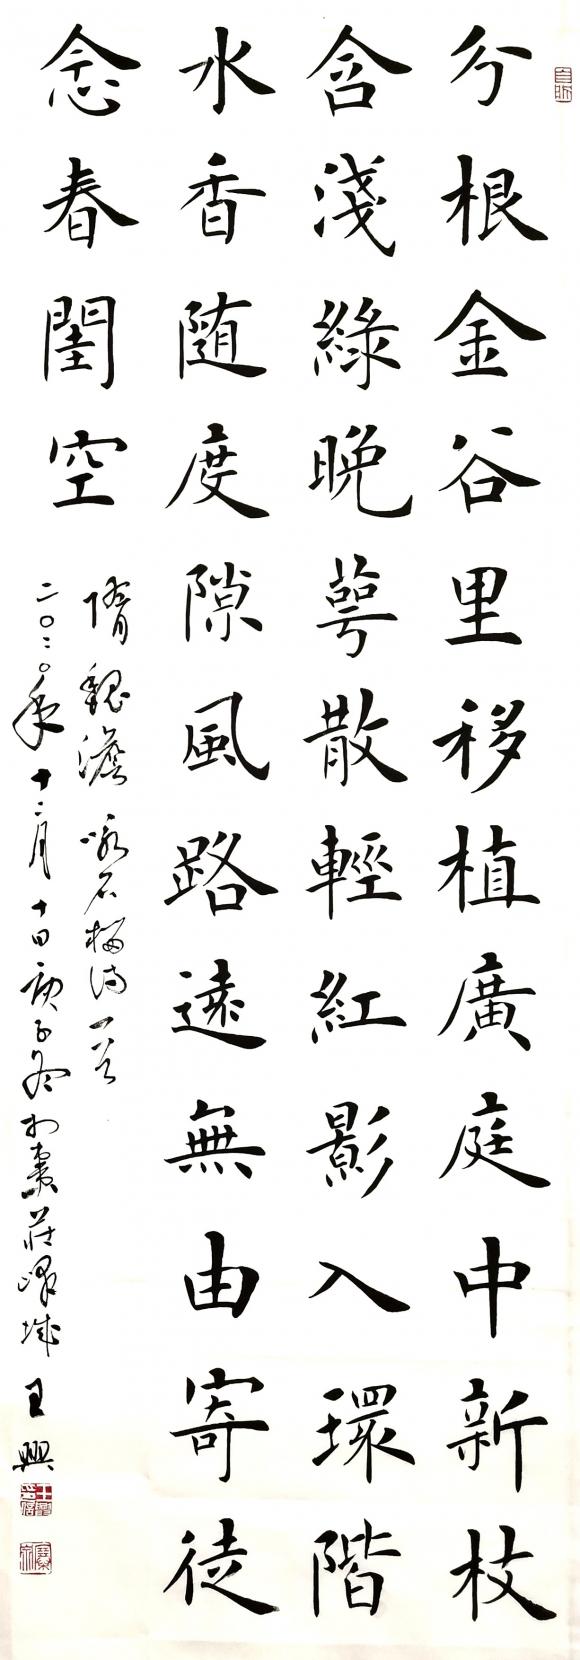 分根金谷里移植廣庭中新枝
含淺綠晚萼散輕紅影入環階
水香随度隙風路遠無由寄徒
念春閨空
隋魏澹咏石榴诗一首
二〇二〇年十二月十日庚子冬於棗莊峄城
王興